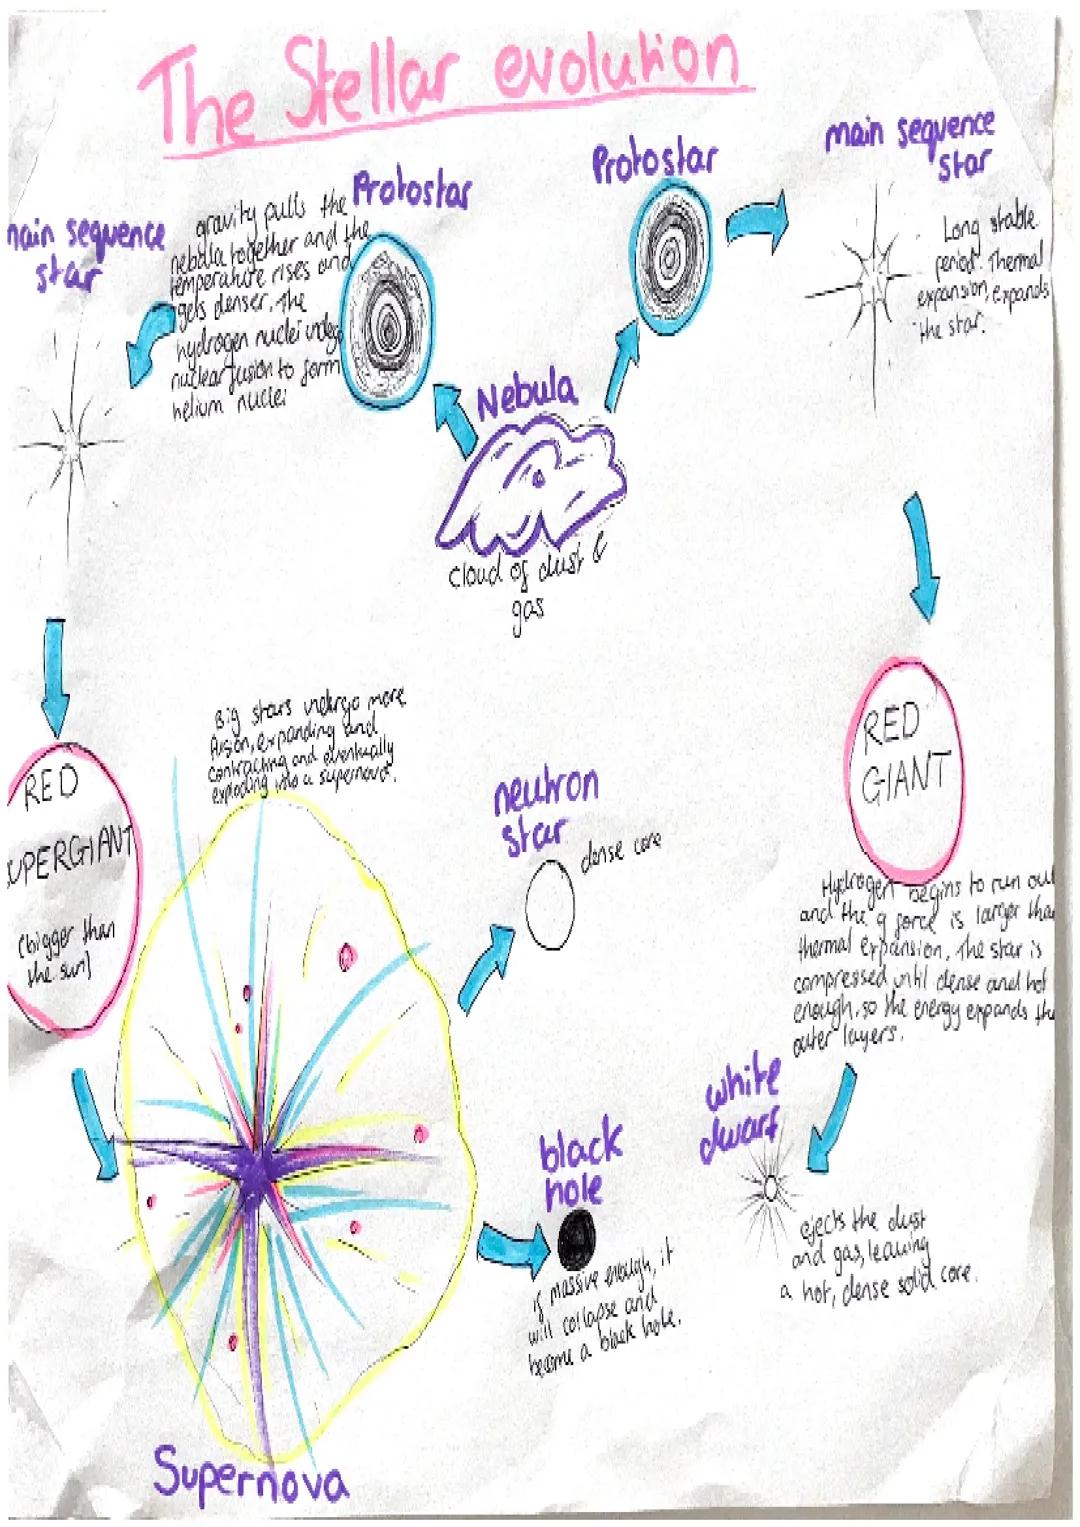 The Stellar evolution
main sequence
star
gravity pulls the
nebula together and the
temperature rises and
gets denser. The
hydrogen nuclei undergo
nuclear fusion to form
helium nuclei
Protostar
Protostar
main sequence
star
Long stable
period. Thermal
expansion, expands
the star.
Nebula
cloud of dust &
gas
RED
SUPERGIANT
(bigger than
the sun)
Big stars undergo more
fusion, expanding and
contracting and eventually
exploding into a supernova.
neutron
star
dense core
RED
GIANT
Hydrogen begins to run out
and the g force is larger than
thermal expansion, the star is
compressed until dense and hot
enough, so the energy expands the
outer layers.
white
dwarf
ejects the dust
and gas, leaving
a hot, dense solid core.
black
hole
if massive enough, it
will collapse and
become a black hole.
Supernova